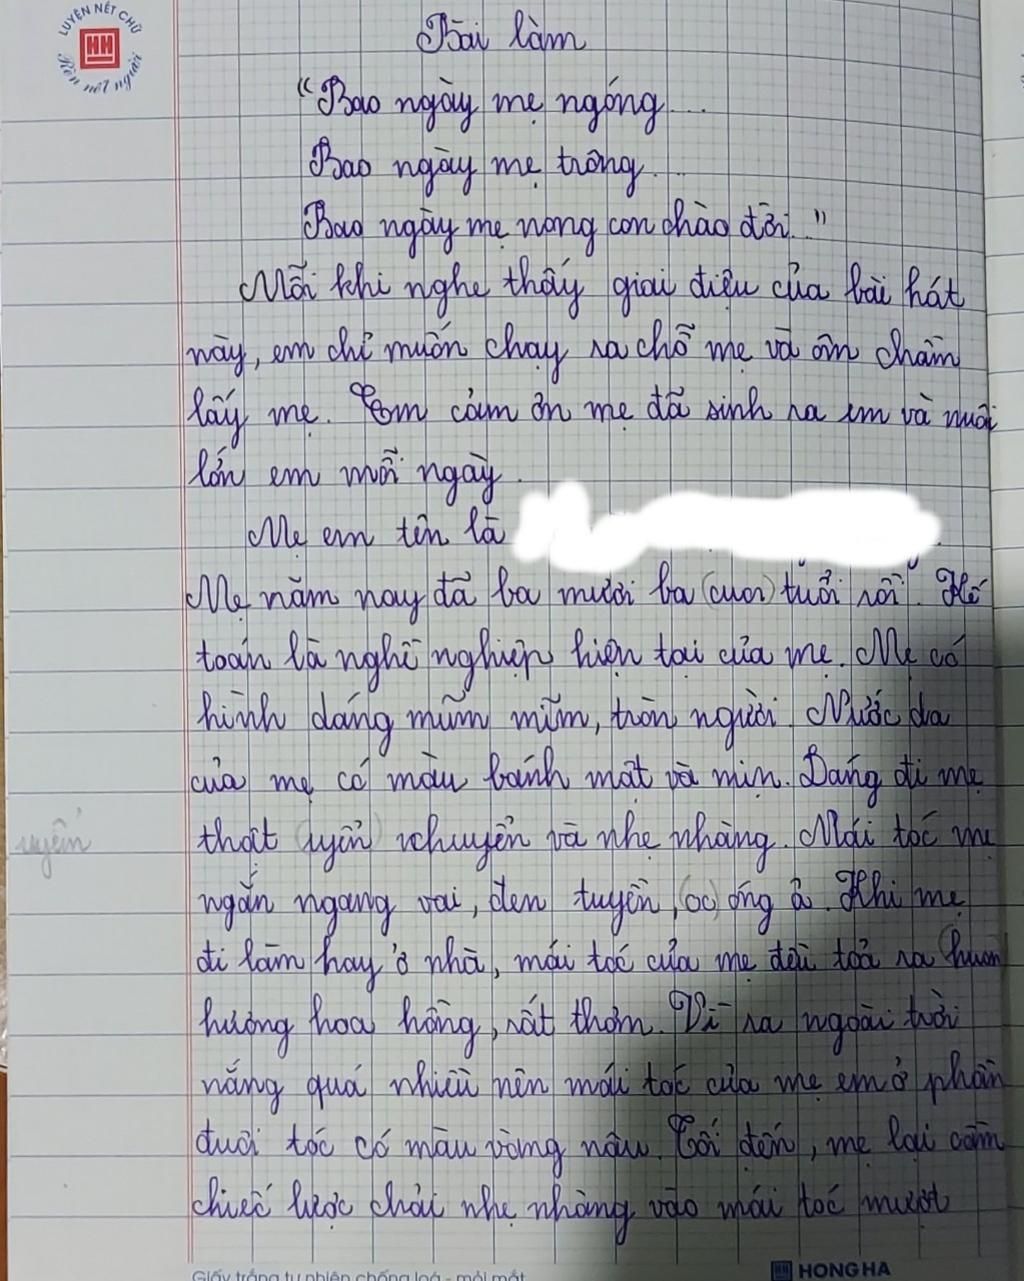 LUYỆN NÉT CHỮ
HH
Rèn nết người
Bài làm
"Bao ngày mẹ ngóng...
Bao ngày mẹ trông...
Bao ngày mẹ nong con chào đời..."
Mỗi khi nghe thấy giai điệu của bài hát
này, em chỉ muốn chạy ra chỗ mẹ và ôm chầm
lấy mẹ. Em cảm ơn mẹ đã sinh ra em và nuôi
lớn em mỗi ngày.
Mẹ em tên là
Mẹ năm nay đã ba mươi ba (cuơi) tuổi rồi. Kế
toán là nghề nghiệp hiện tại của mẹ. Mẹ có
hình dáng mũm mĩm, tròn người. Nước da
của mẹ có màu bánh mật và mịn. Dáng đi mẹ
uyển
thật (uyển) chuyển và nhẹ nhàng. Mái tóc mẹ
ngắn ngang vai, đen tuyền, (óc) óng ả. Khi mẹ
đi làm hay ở nhà, mái tóc của mẹ đều toả ra
hương hoa hồng, rất thơm. Vì ra ngoài trời
nắng quá nhiều nên mái tóc của mẹ em ở phần
đuôi tóc có màu vàng nâu. Tối đến, mẹ lại cầm
chiếc lược chải nhẹ nhàng vào mái tóc mượt
Giấy trắng tự nhiên chống loá - mỏi mắt
HH HONG HA